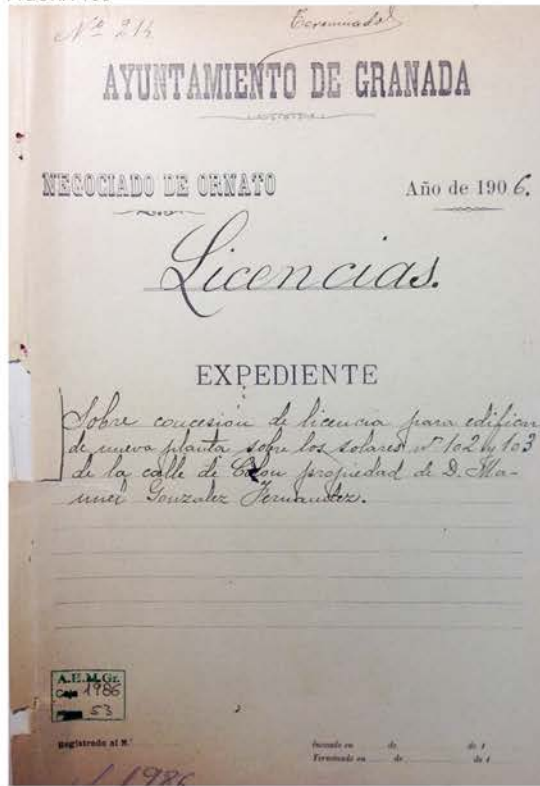 Nº 214
Terminado
AYUNTAMIENTO DE GRANADA
NEGOCIADO DE ORNATO
Año de 1906.
Licencias.
EXPEDIENTE
Sobre concesion de licencia para edificar
de nueva planta sobre los solares nº 102 y 103
de la calle de Colon propiedad de D. Ma-
nuel Gonzalez Fernandez.
A.E.M.Gr.
Caja 1986
53
Registrado al N.º
Incoado en de de 1
Terminado en de de 1
1986